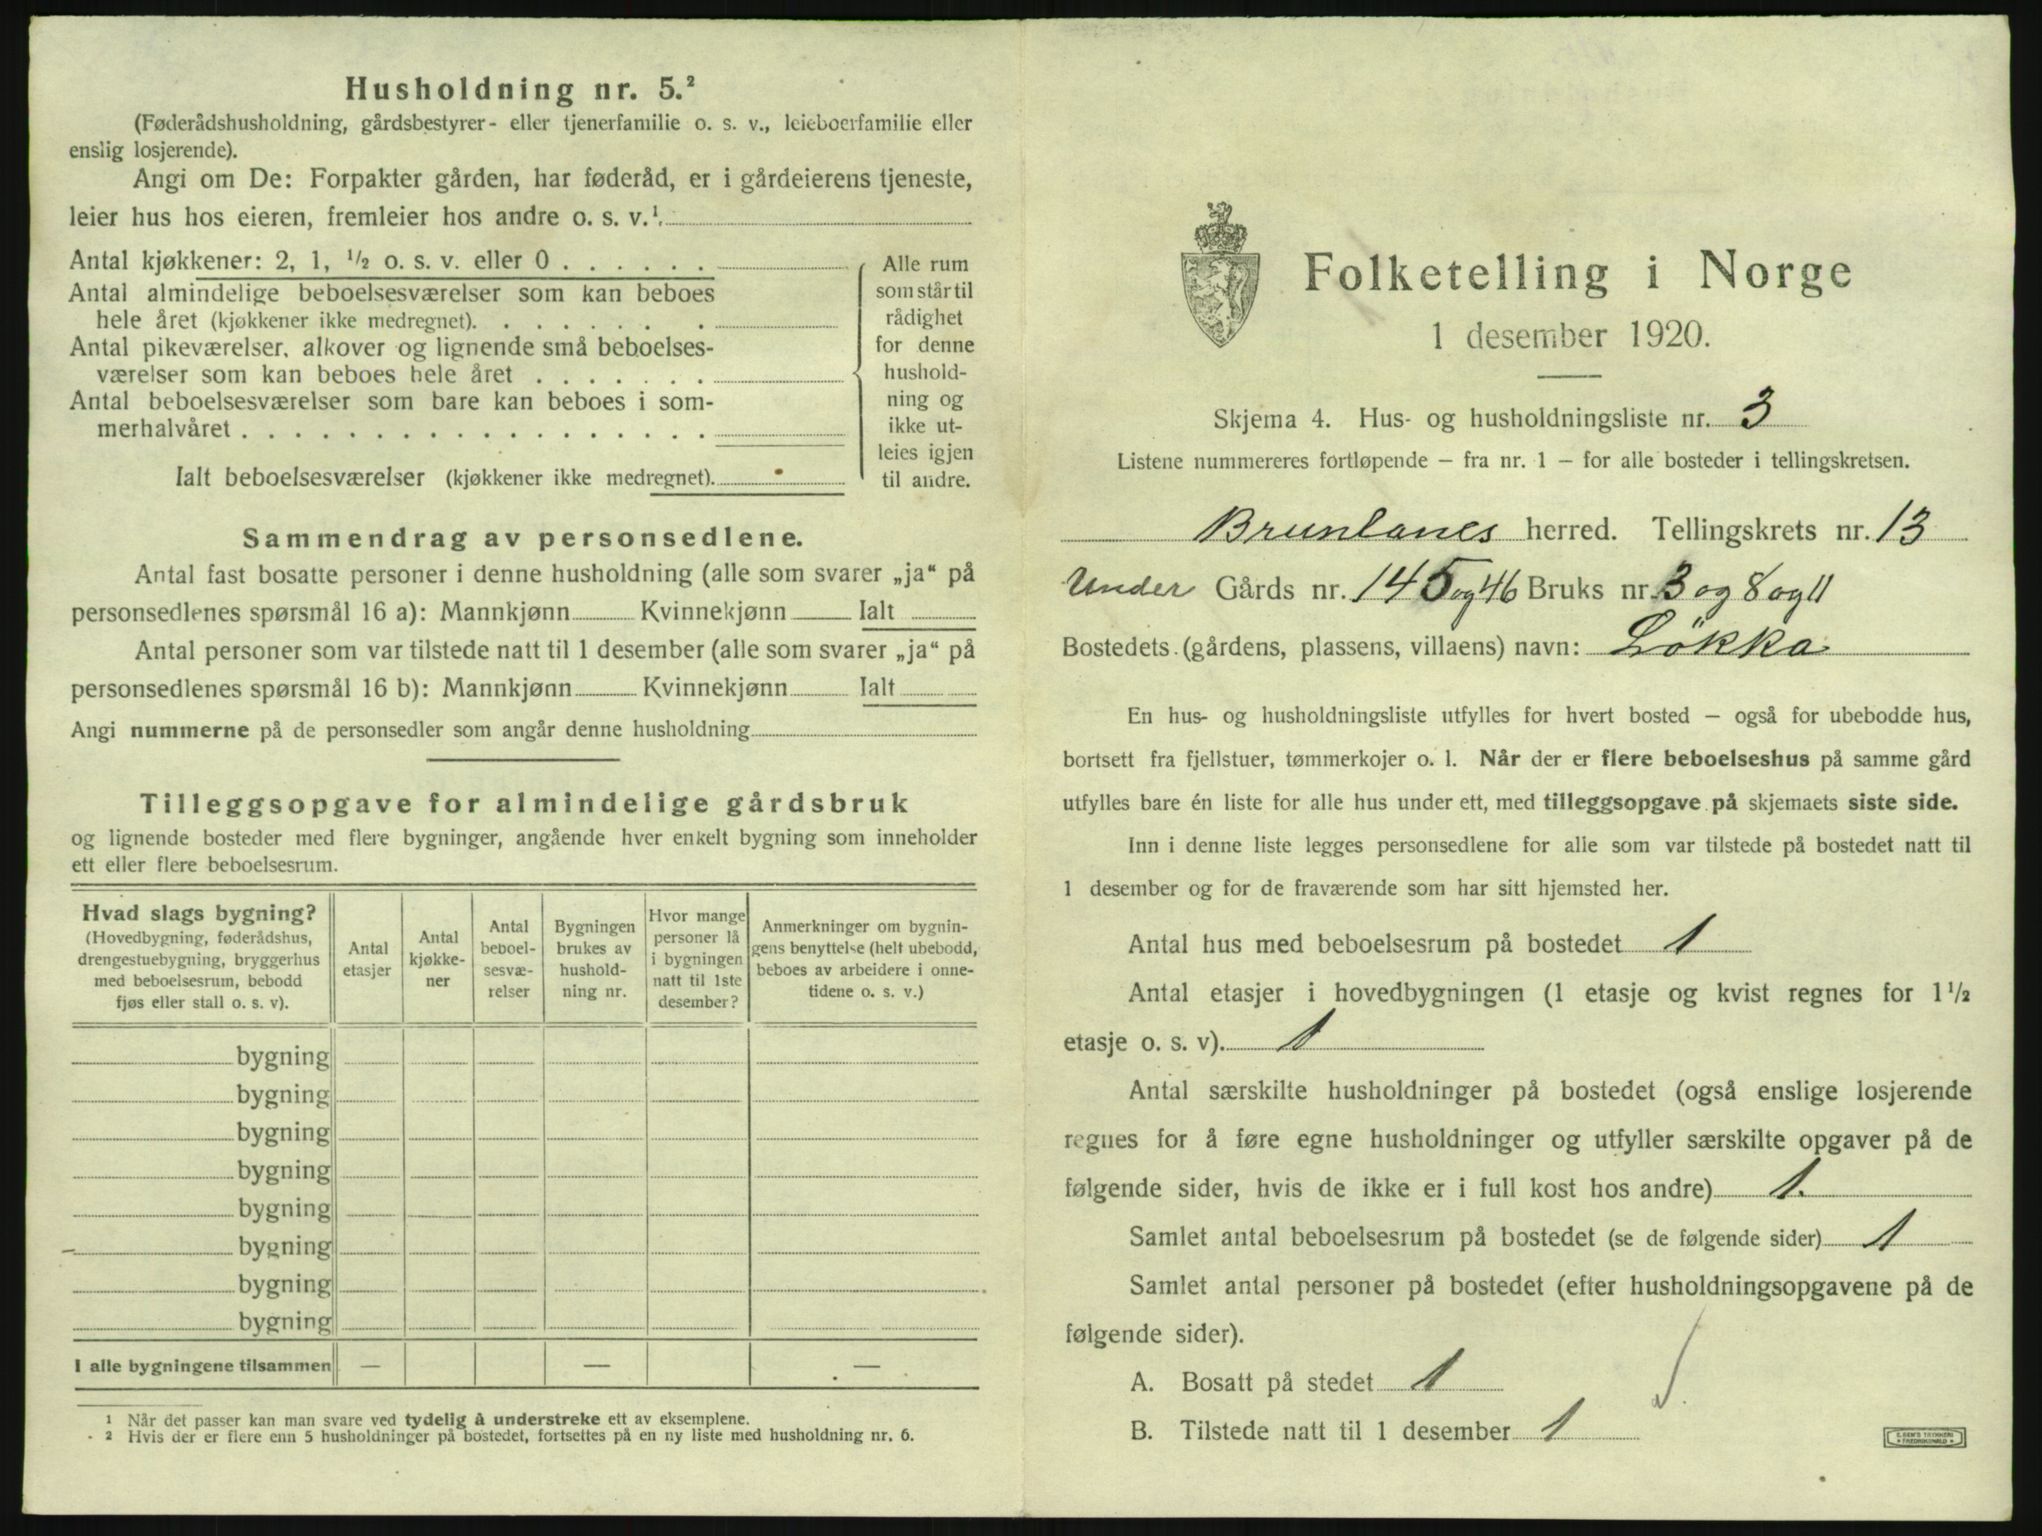 Husholdning nr. 5.²
(Føderådshusholdning, gårdsbestyrer- eller tjenerfamilie o. s. v., leieboerfamilie eller
enslig losjerende).
Angi om De: Forpakter gården, har føderåd, er i gårdeierens tjeneste,
leier hus hos eieren, fremleier hos andre o. s. v.¹.
Antal kjøkkener: 2, 1, ½ o. s. v. eller 0
Antal almindelige beboelsesværelser som kan beboes
hele året (kjøkkener ikke medregnet).
Antal pikeværelser, alkover og lignende små beboelses-
værelser som kan beboes hele året
Antal beboelsesværelser som bare kan beboes i som-
merhalvåret
Ialt beboelsesværelser (kjøkkener ikke medregnet).
Alle rum
som står til
rådighet
for denne
hushold-
ning og
ikke ut-
leies igjen
til andre.
Sammendrag av personsedlene.
Antal fast bosatte personer i denne husholdning (alle som svarer „ja“ på
personsedlenes spørsmål 16 a): Mannkjønn Kvinnekjønn Ialt
Antal personer som var tilstede natt til 1 desember (alle som svarer „ja“ på
personsedlenes spørsmål 16 b): Mannkjønn Kvinnekjønn Ialt
Angi nummerne på de personsedler som angår denne husholdning
Tilleggsopgave for almindelige gårdsbruk
og lignende bosteder med flere bygninger, angående hver enkelt bygning som inneholder
ett eller flere beboelsesrum.
Hvad slags bygning?
(Hovedbygning, føderådshus,
drengestuebygning, bryggerhus
med beboelsesrum, bebodd
fjøs eller stall o. s. v).
Antal
etasjer
Antal
kjøkke-
ner
Antal
beboel-
sesvæ-
relser
Bygningen
brukes av
hushold-
ning nr.
Hvor mange
personer lå
i bygningen
natt til 1ste
desember?
Anmerkninger om bygnin-
gens benyttelse (helt ubebodd,
beboes av arbeidere i onne-
tidene o. s. v.)
bygning
bygning
bygning
bygning
bygning
bygning
bygning
bygning
I alle bygningene tilsammen — — —
¹ Når det passer kan man svare ved tydelig å understreke ett av eksemplene.
² Hvis der er flere enn 5 husholdninger på bostedet, fortsettes på en ny liste med husholdning nr. 6.
Folketelling i Norge
1 desember 1920.
Skjema 4. Hus- og husholdningsliste nr. 3
Listene nummereres fortløpende – fra nr. 1 – for alle bosteder i tellingskretsen.
Brunlanes herred. Tellingskrets nr. 13
Under Gårds nr. 145 og 46 Bruks nr. 3 og 8 og 11
Bostedets (gårdens, plassens, villaens) navn: Løkka
En hus- og husholdningsliste utfylles for hvert bosted – også for ubebodde hus,
bortsett fra fjellstuer, tømmerkojer o. l. Når der er flere beboelseshus på samme gård
utfylles bare én liste for alle hus under ett, med tilleggsopgave på skjemaets siste side.
Inn i denne liste legges personsedlene for alle som var tilstede på bostedet natt til
1 desember og for de fraværende som har sitt hjemsted her.
Antal hus med beboelsesrum på bostedet 1
Antal etasjer i hovedbygningen (1 etasje og kvist regnes for 1½
etasje o. s. v). 1
Antal særskilte husholdninger på bostedet (også enslige losjerende
regnes for å føre egne husholdninger og utfyller særskilte opgaver på de
følgende sider, hvis de ikke er i full kost hos andre) 1.
Samlet antal beboelsesrum på bostedet (se de følgende sider) 1
Samlet antal personer på bostedet (efter husholdningsopgavene på de
følgende sider).
A. Bosatt på stedet 1
B. Tilstede natt til 1 desember 1